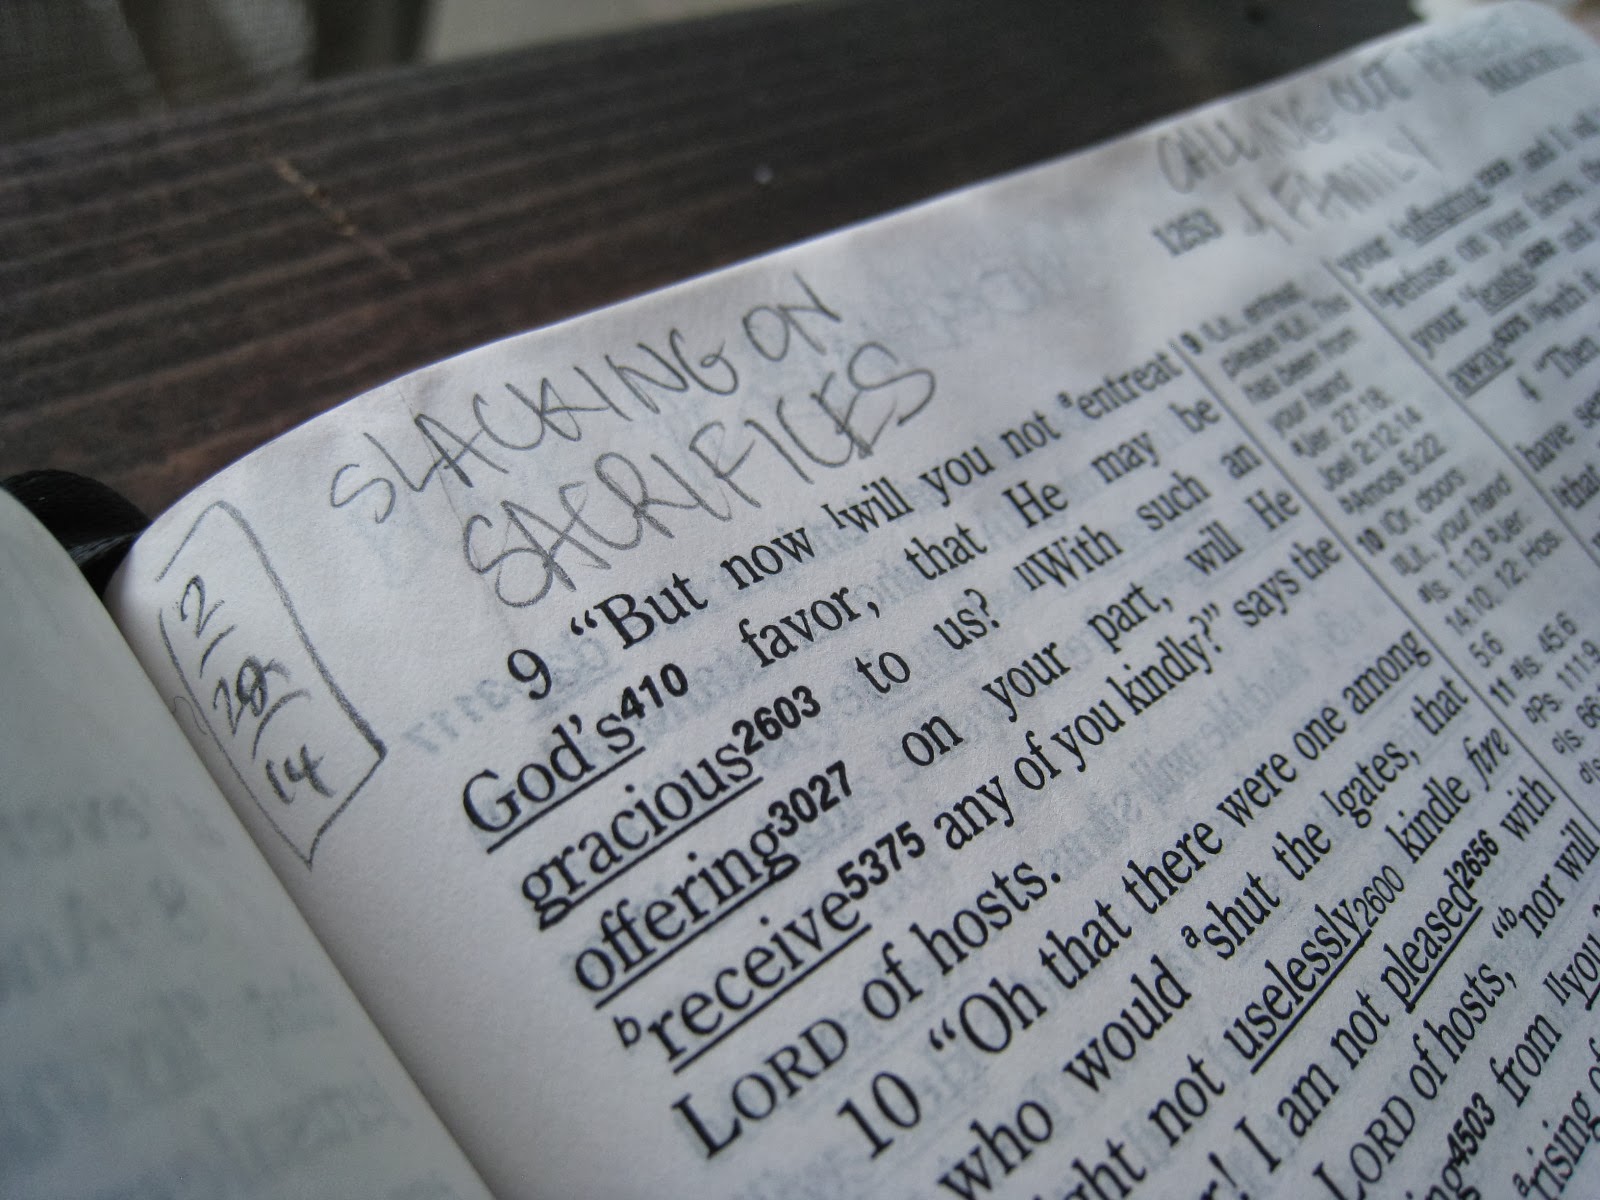 SLACKING ON
SACRIFICES
2
20
14
9 “But now ᴵwill you not ᵃentreat
God's⁴¹⁰ favor, that He may be
gracious²⁶⁰³ to us? ᴵᴵWith such an
offering³⁰²⁷ on your part, will He
ᵇreceive⁵³⁷⁵ any of you kindly?” says the
LORD of hosts.
10 “Oh that there were one among
who would ᵃshut the ᴵgates, that
ght not uselessly²⁶⁰⁰ kindle fire
r! I am not pleased²⁶⁵⁶ with
LORD of hosts, “ᵇnor will
ng⁴⁵⁰³ from ᴵᴵyou
ᵃrising of
1253
CALLING OUT
& FAMILY
9 ᴵLit., entreat
please ᴵᴵLit. This
has been from
your hand
ᵃJer. 27:18;
Joel 2:12-14
ᵇAmos 5:22
10 ᴵOr, doors
ᴵᴵLit., your hand
ᵃIs. 1:13 ᵇJer.
14:10, 12; Hos.
5:6
11 ᵃIs. 45:6
ᵇPs. 111:9
ᶜIs. 66
your offspring and I
refuse on your faces, the
your feasts and
away with it.
4 “Then
have se
that